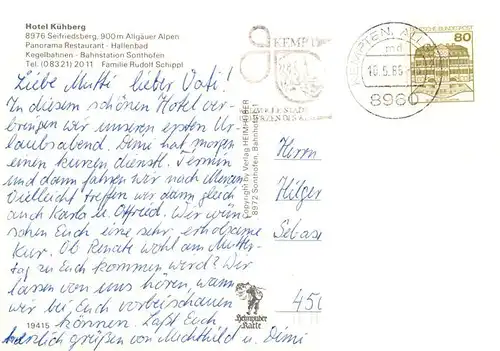 Hotel Kühberg
8976 Seifriedsberg, 900 m Allgäuer Alpen
Panorama Restaurant - Hallenbad
Kegelbahnen - Bahnstation Sonthofen
Tel. (08321) 2011 Familie Rudolf Schippl
Liebe Mutti lieber Vati!
In diesem schönen Hotel ver-
bringen wir unseren ersten Ur-
laubsabend. Dimi hat morgen
einen kurzen dienstl. Termin
und dann fahren wir nach Meran
Vielleicht treffen wir dann gleich
auch Karla u. Ottfried. Wir wün
schen Euch eine sehr erholsame
Kur. Ob Renate wohl am Mutter-
tag zu Euch kommen wird? Wir
lassen von uns hören, wann
wir bei Euch vorbeischauen
können. Laßt Euch
herzlich grüßen von Mechthild u. Dimi
19415
Copyright by Verlag HEIMHUBER
8972 Sonthofen, Bahnhofstr. 1
KEMPT
KEMPTEN, ALL
md
10.5.85
8960
DEUTSCHE BUNDESPOST
80
Herrn
Hilger
Sebas
450
Heimhuber
Karte